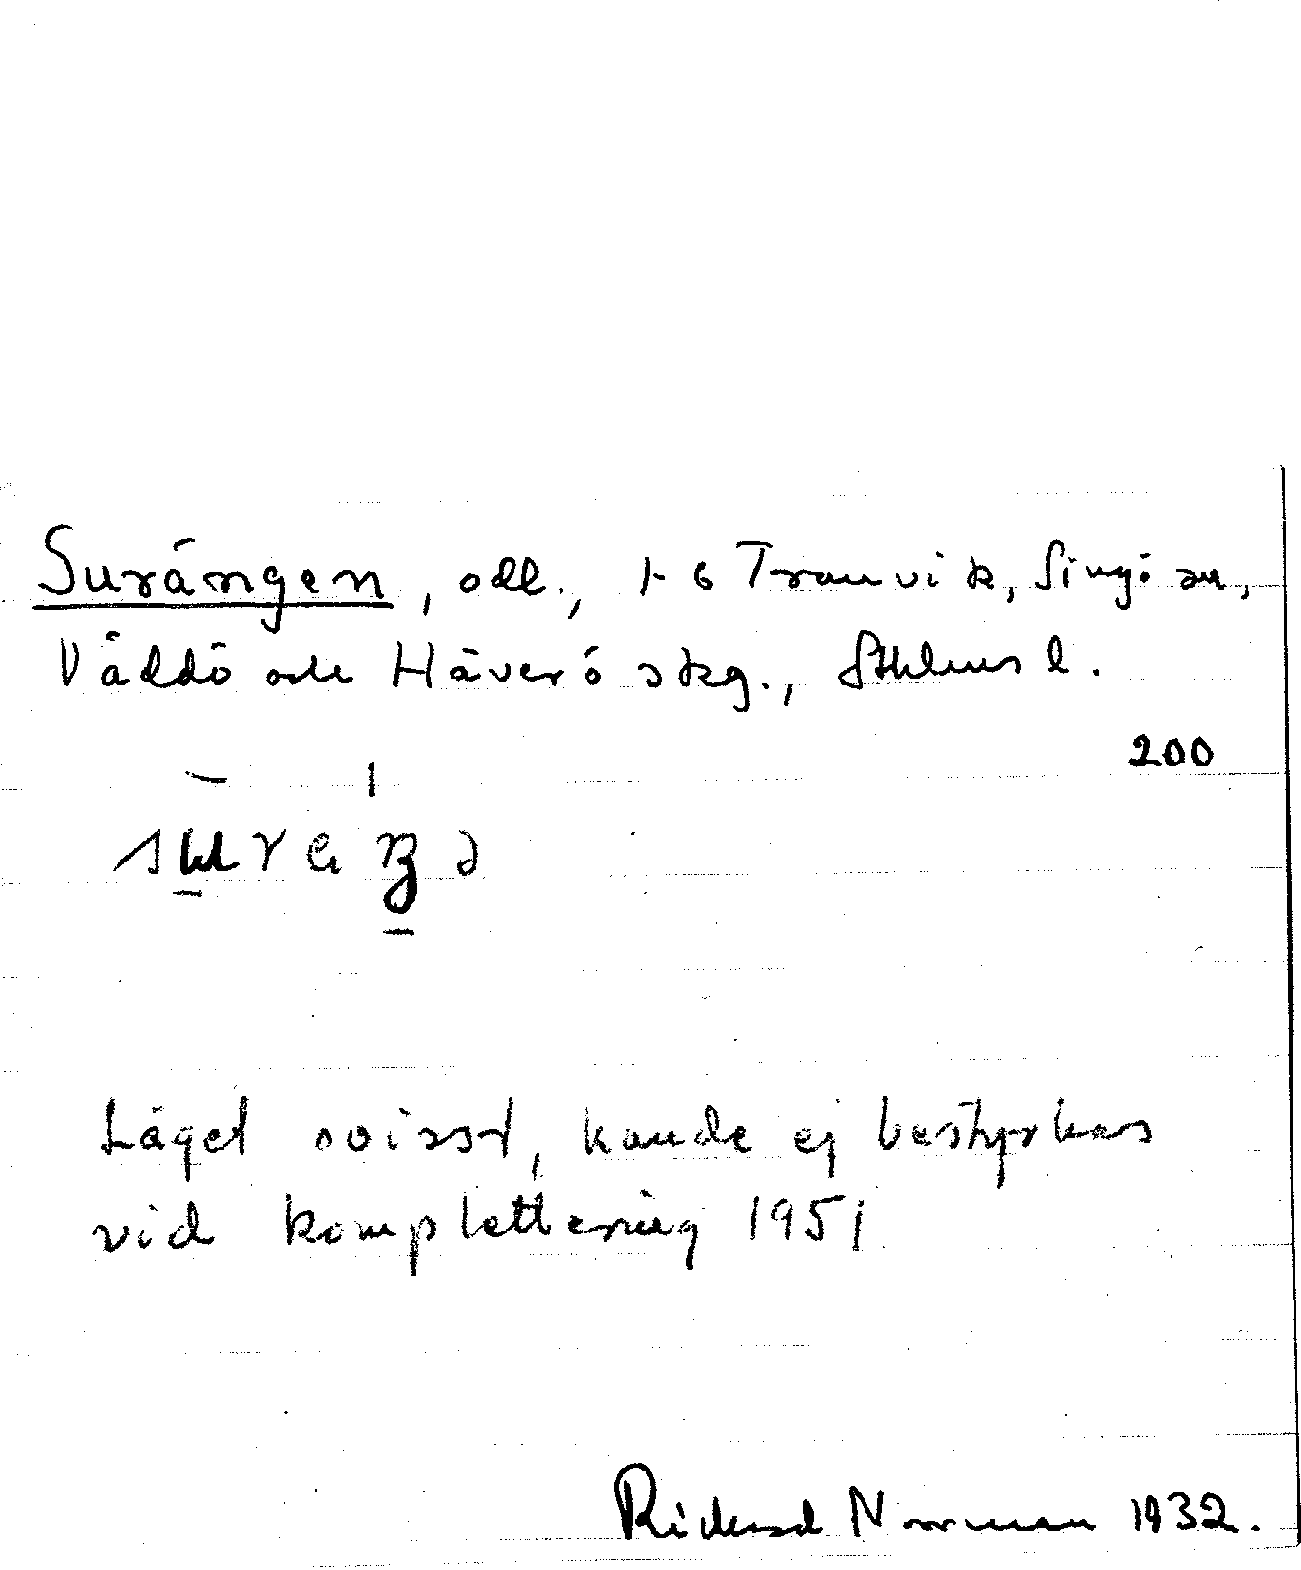 Surängen, odl., t. Tranvik, Singö sn,
Väddö och Häverö skg., Sthlms l.
200
Läget ovisst, kunde ej bestyrkas
vid komplettering 1951
Rickard Norrman 1932.